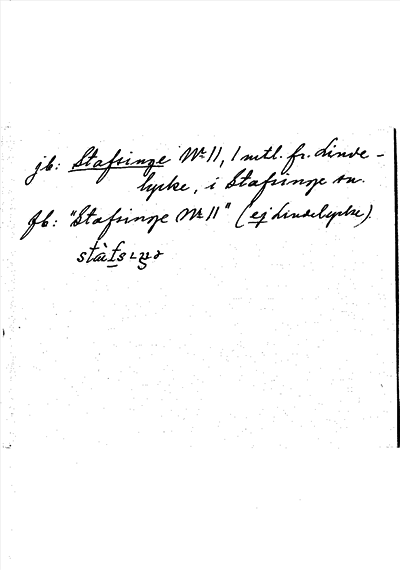 jb: Stafsinge Nr 11, 1 mtl. fr. Linde-
lycke, i Stafsinge sn.
fb: "Stafsinge Nr 11" (ej Lindelycke)